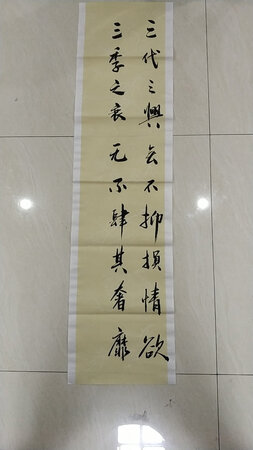 三代之興无不抑損情欲
三季之衰无不肆其奢靡